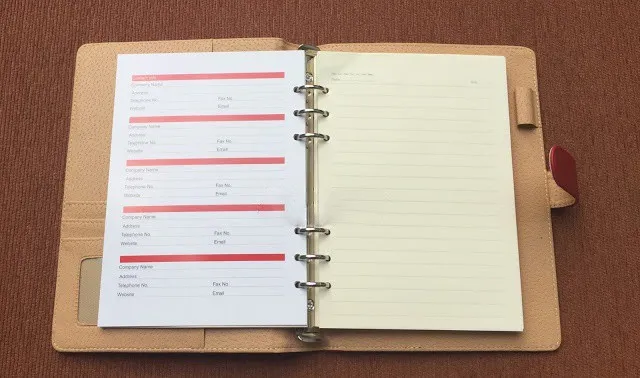 Company Name
Address
Telephone No. Fax No.
Website Email
Company Name
Address
Telephone No. Fax No.
Website Email
Company Name
Address
Telephone No. Fax No.
Website Email
Company Name
Address
Telephone No. Fax No.
Website Email
Company Name
Address
Telephone No. Fax No.
Website Email